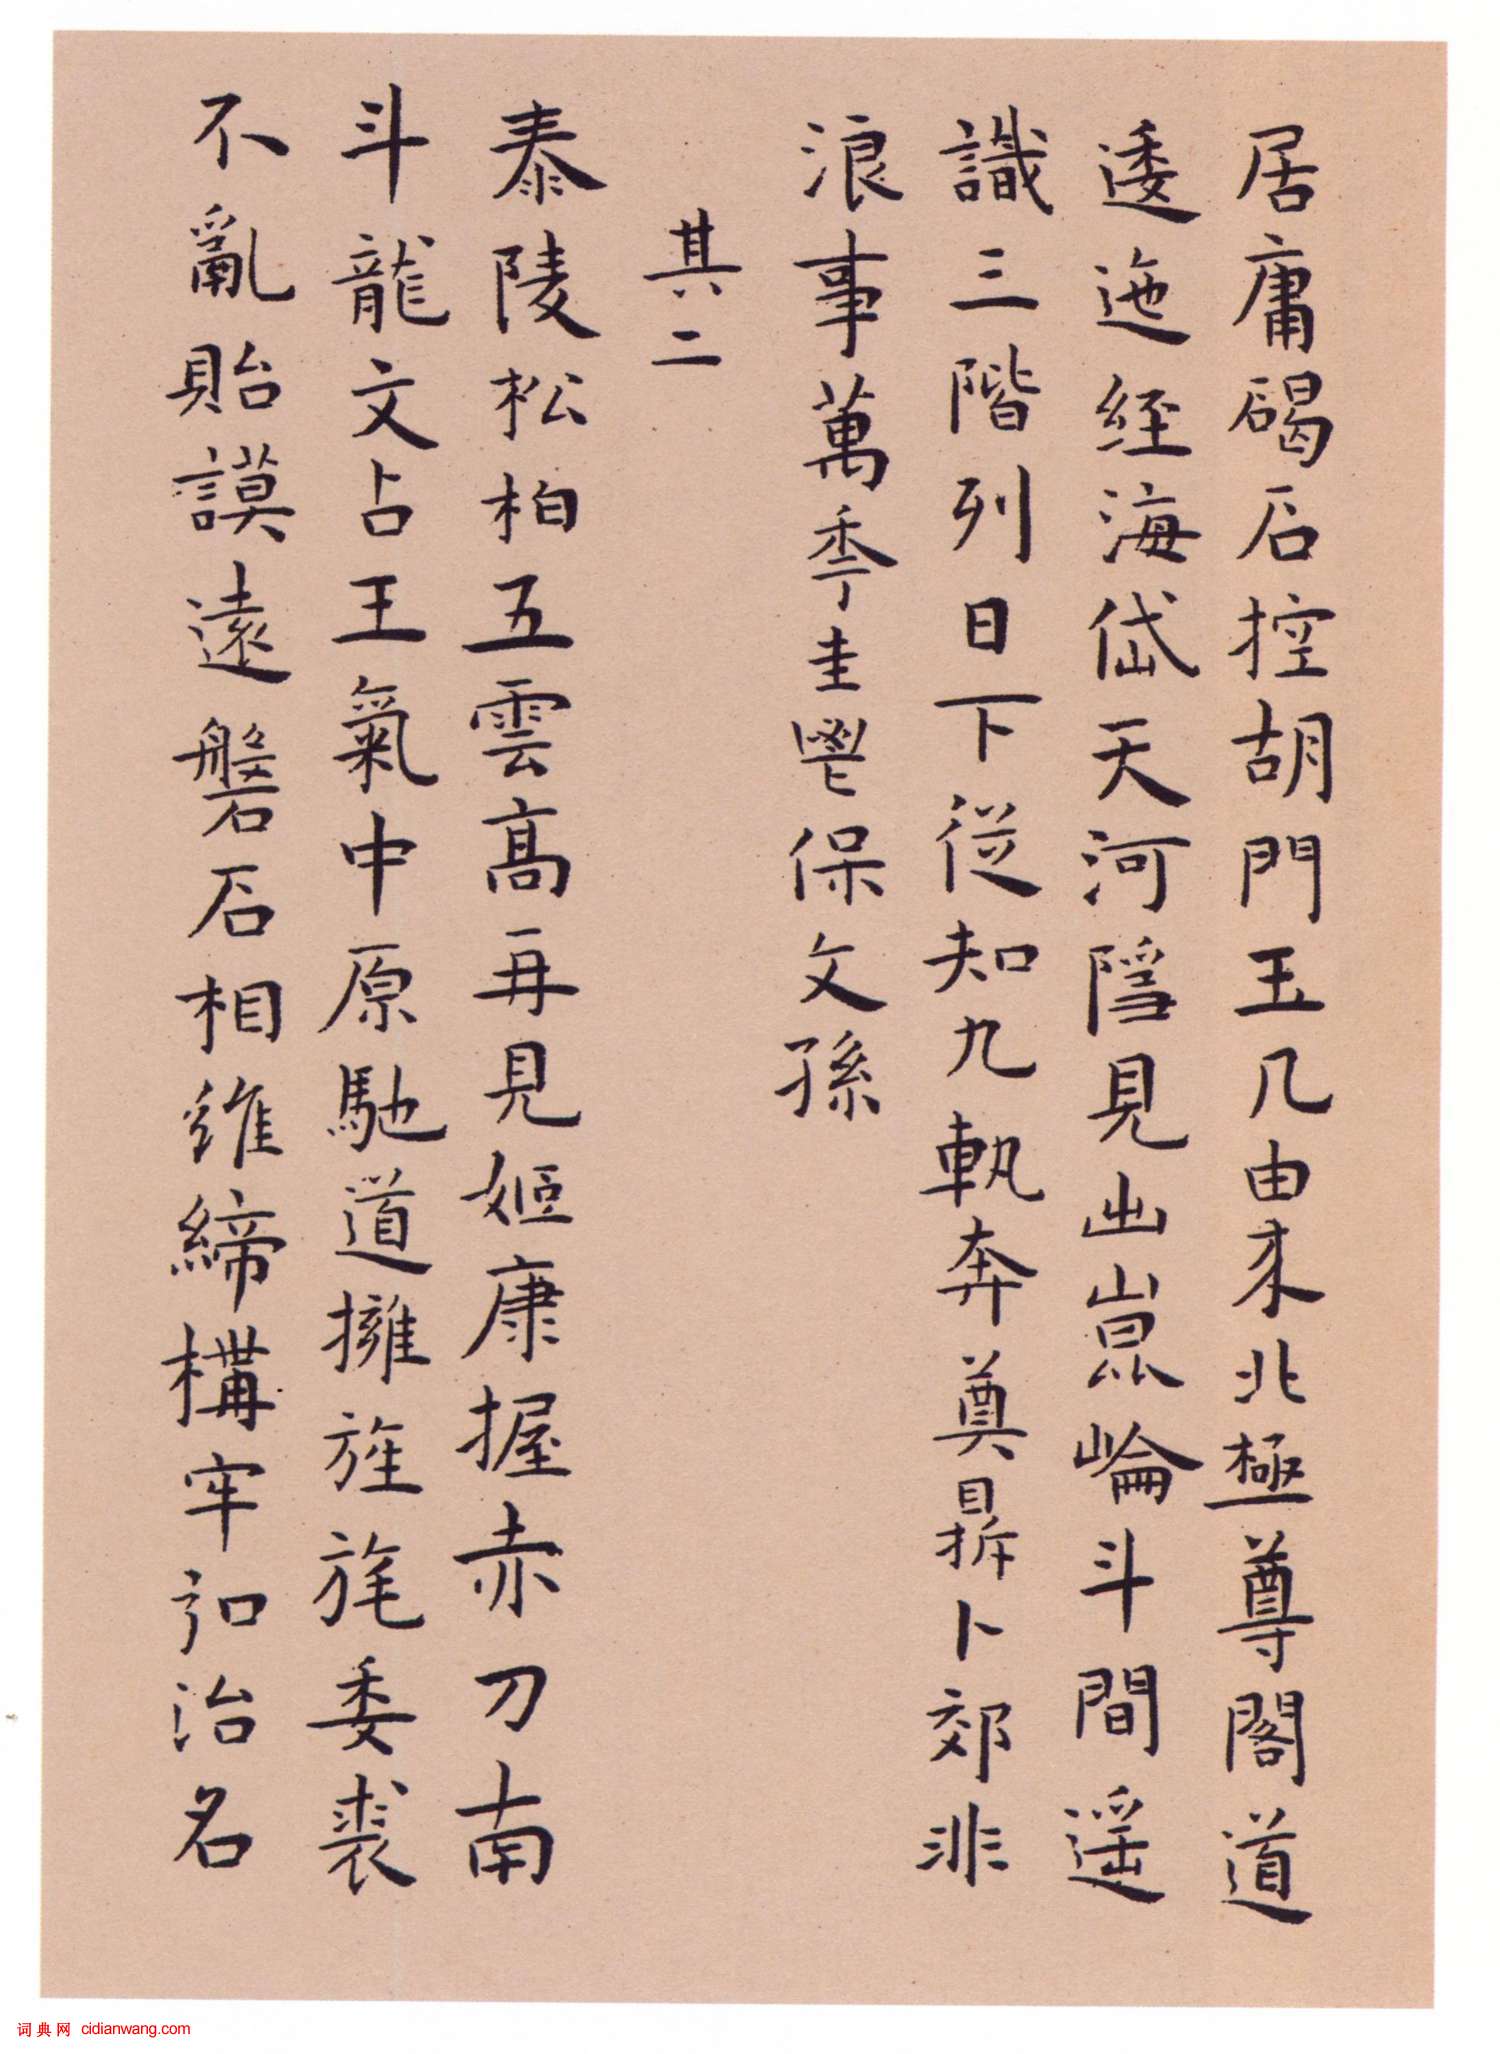 居庸碣石控胡門玉几由来北極尊閣道
逶迤経海岱天河隱見出崑崙斗間遥
識三階列日下従知九軌奔奠鼎卜郊非
浪事萬季圭鬯保文孫
其二
泰陵松柏五雲髙再見姬康握赤刀南
斗龍文占王氣中原馳道擁旌旄委裘
不亂貽謨遠磐石相維締構牢弘治名
词典网 cidianwang.com